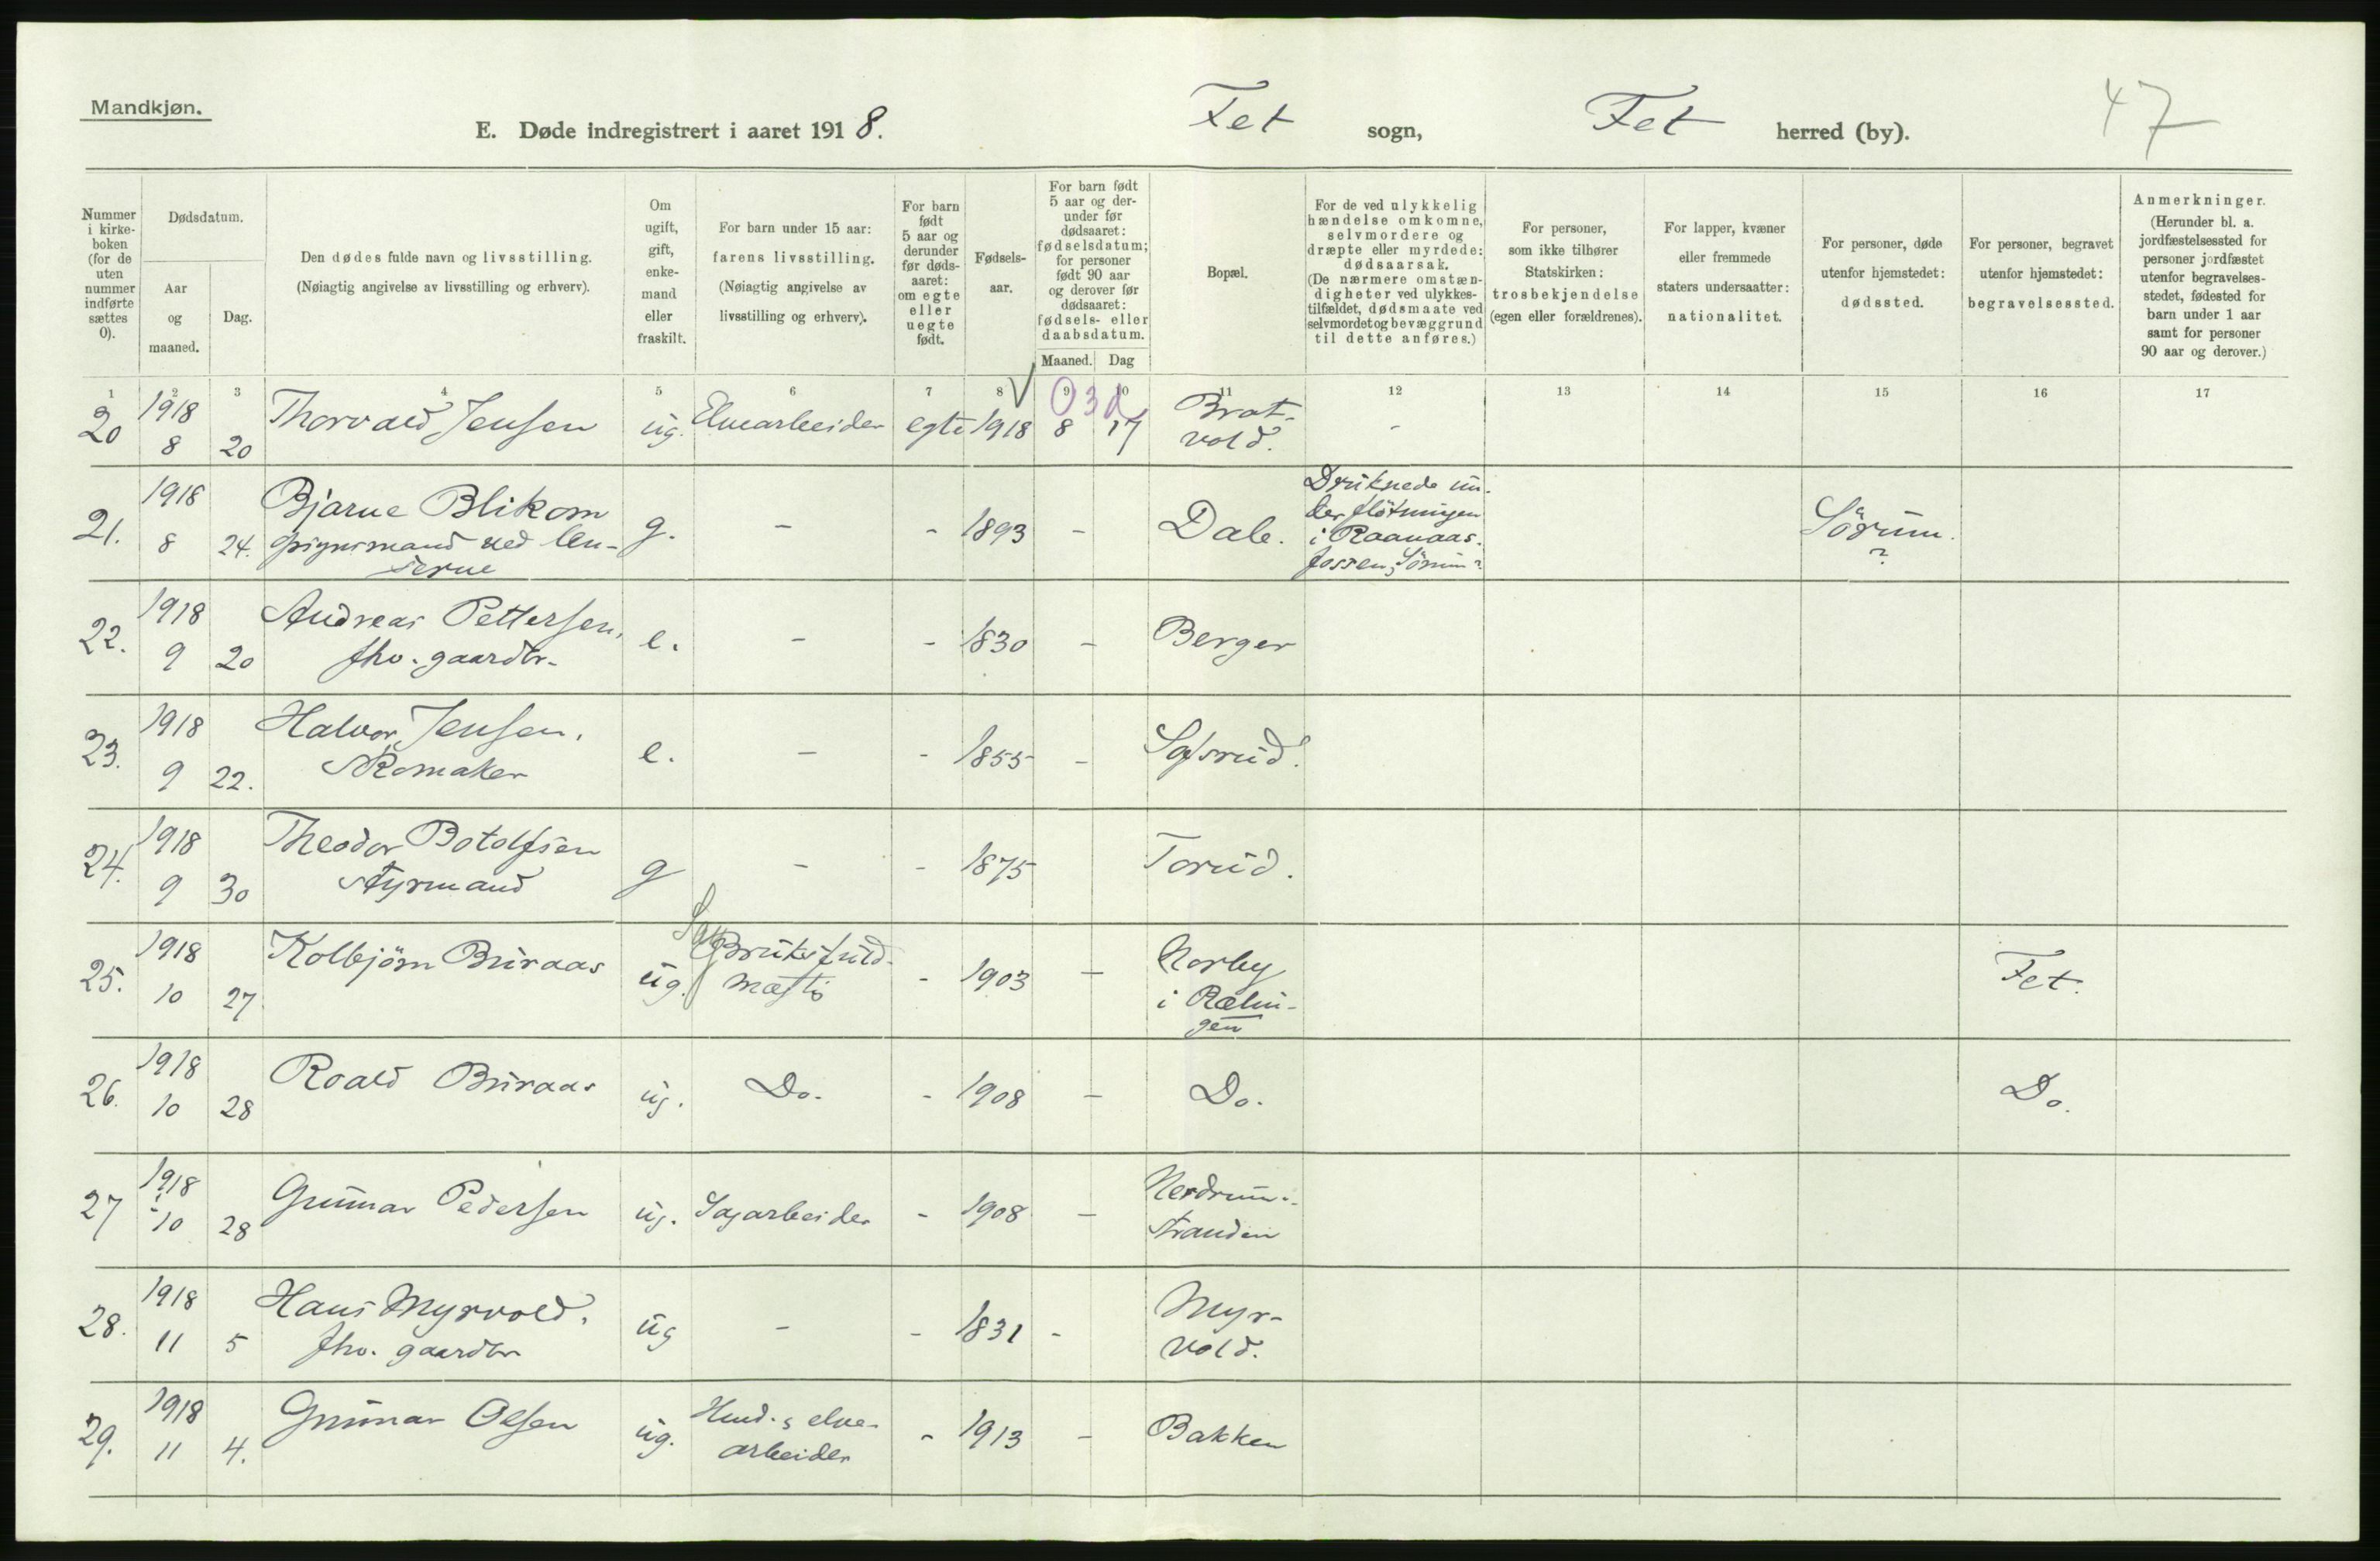 Mandkjøn.
E. Døde indregistrert i aaret 1918.
Fet sogn,
Fet herred (by).
47
Nummer i kirkeboken (for de uten nummer indførte sættes 0).
Dødsdatum.
Aar og maaned.
Dag.
Den dødes fulde navn og livsstilling.
(Nøiagtig angivelse av livsstilling og erhverv).
Om ugift, gift, enkemand eller fraskilt.
For barn under 15 aar: farens livsstilling.
(Nøiagtig angivelse av livsstilling og erhverv).
For barn født 5 aar og derunder før dødsaaret: om egte eller uegte født.
Fødselsaar.
For barn født 5 aar og derunder før dødsaaret: fødselsdatum; for personer født 90 aar og derover før dødsaaret: fødsels- eller daabsdatum.
Maaned. Dag
Bopæl.
For de ved ulykkelig hændelse omkomne, selvmordere og dræpte eller myrdede: dødsaarsak.
(De nærmere omstændigheter ved ulykkestilfældet, dødsmaate ved selvmordet og bevæggrund til dette anføres.)
For personer, som ikke tilhører Statskirken: trosbekjendelse (egen eller forældrenes).
For lapper, kvæner eller fremmede staters undersaatter: nationalitet.
For personer, døde utenfor hjemstedet: dødssted.
For personer, begravet utenfor hjemstedet: begravelsessted.
Anmerkninger.
(Herunder bl. a. jordfæstelsessted for personer jordfæstet utenfor begravelsesstedet, fødested for barn under 1 aar samt for personer 90 aar og derover.)
1 2 3 4 5 6 7 8 9 10 11 12 13 14 15 16 17
03d
20 1918 8 20 Thorvald Jensen ug. Elvearbeider egte 1918 8 17 Bratvold. -
21. 1918 8 24. Bjarne Blikom
mand ved lenserne g. - - 1893 - Dale. Druknede under flötningen i Raanaasfossen, Sörum? Sörum. ?
22. 1918 9 20 Andreas Pettersen,
fhv. gaardbr. e. - - 1830 - Berger
23. 1918 9 22. Halvor Jensen.
Skomaker e. - - 1855 -
24. 1918 9 30 Theodor Botolfsen
styrmand g - - 1875 Torud.
25. 1918 10 27 Kolbjörn Buraas ug. Sag Bruksfuldmægtig - 1903 - Norby i Rælingen Fet.
26. 1918 10 28 Roald Buraas ug. Do. - 1908 - Do. Do.
27 1918 10 28 Gunnar Pedersen ug. Sagarbeider - 1908 - Nerdrumstranden
28. 1918 11 5 Hans Myrvold.
fhv. gaardbr ug - - 1831 - Myrvold.
29. 1918 11 4. Gunnar Olsen ug. elvearbeider - 1913 - Bakken